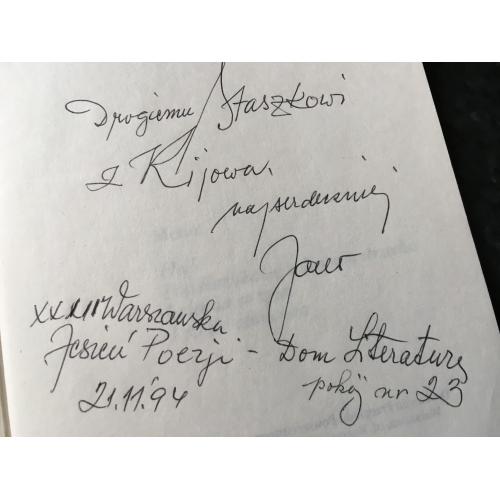 Drogiemu Staszkowi
z Kijowa.
najserdeczniej
XXIII Warszawska
Jesień Poezji - Dom Literatury
21.11.94 pokój nr 23